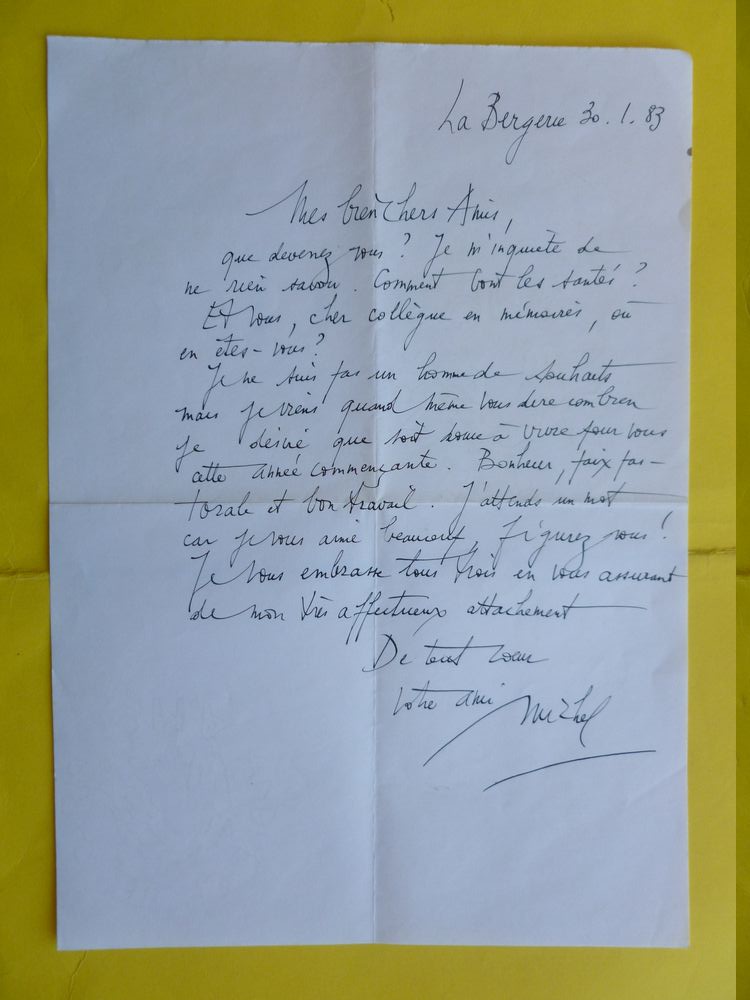 La Bergerie 30.1.83
Mes bien chers Amis,
que devenez vous ? Je m'inquiète de
ne rien savoir. Comment vont les santés ?
Et vous, cher collègue en mémoires, où
en êtes-vous ?
Je ne suis pas un homme de souhaits
mais je viens quand même vous dire combien
je désire que soit douce à vivre pour vous
cette année commençante. Bonheur, paix pas-
torale et bon travail. J'attends un mot
car je vous aime beaucoup, figurez vous !
Je vous embrasse tous trois en vous assurant
de mon très affectueux attachement
De tout coeur
votre ami Michel